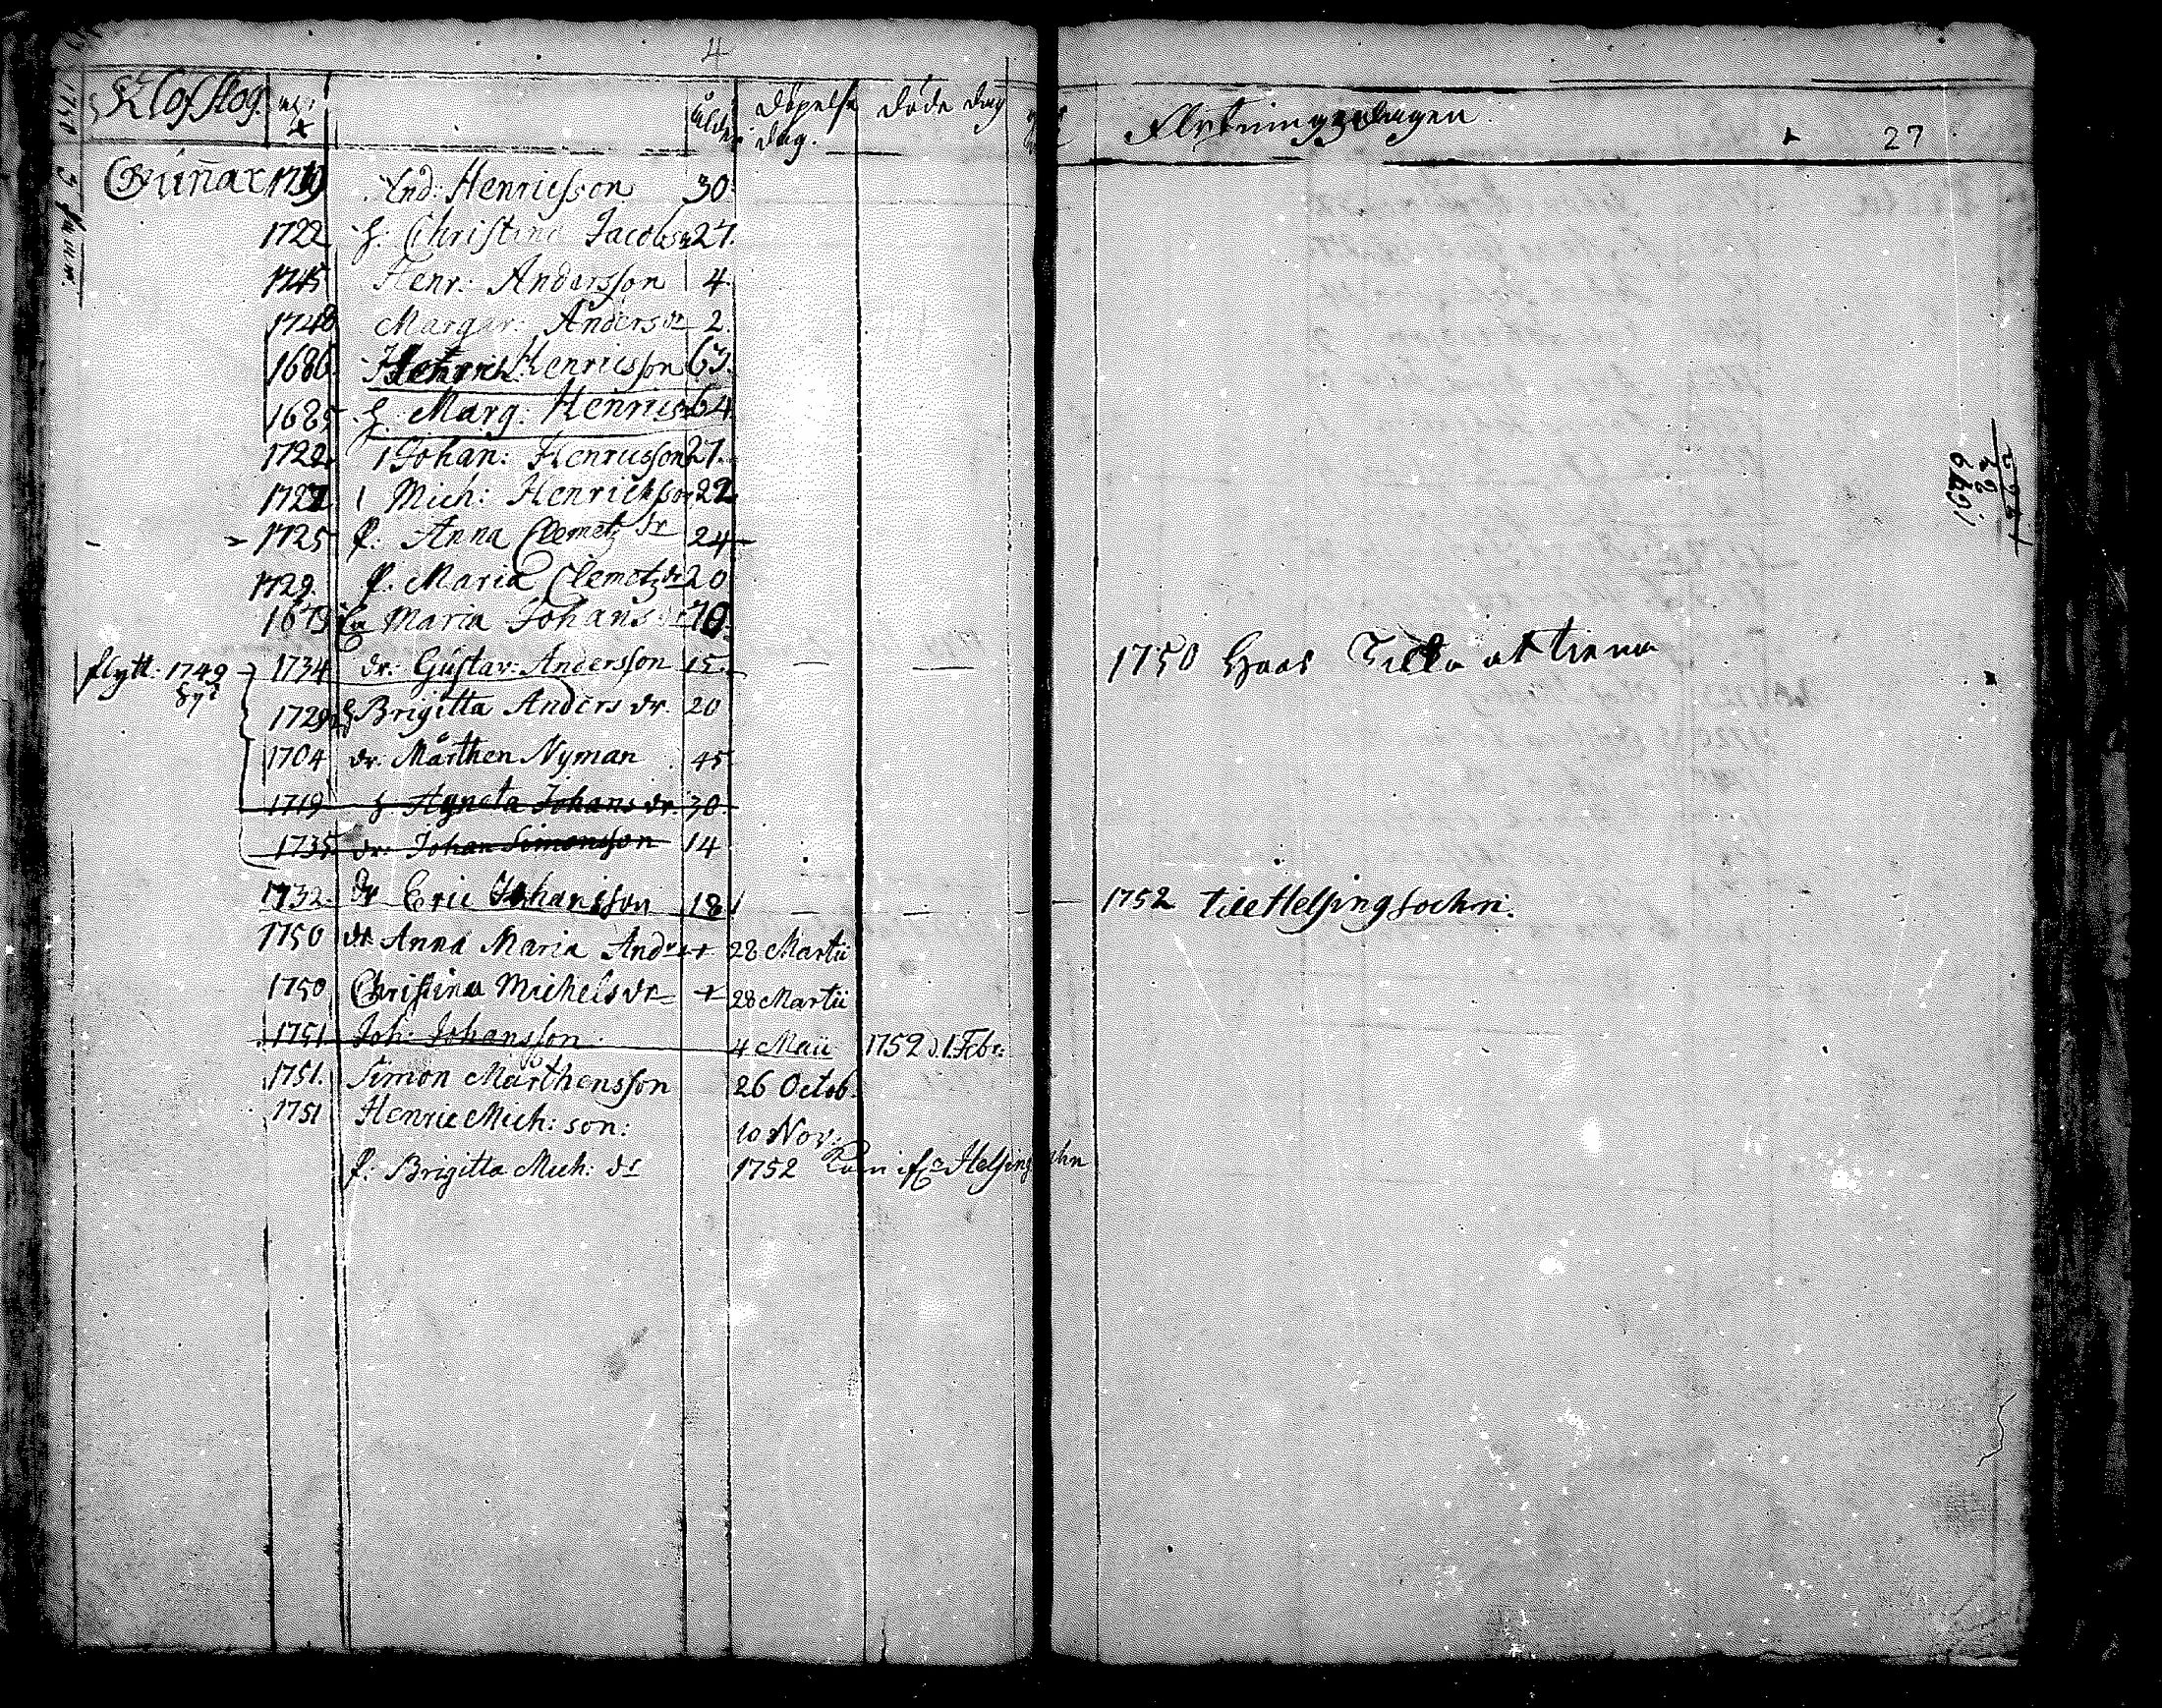 4
Klofskog. ålder Döpelse dag. Döde dag Flytningzdagen 27
Gunnar 1719 And: Henricsson 30.
1722 h. Christina Jacobs 27.
1745 Henr: Andersson 4.
1748 Margar: Anders dr 2.
1686 Henrich Henricsson 63.
1685 h. Marg: Henrics 64
1722 Johan: Henricsson 27.
1727 Mich: Henrichsson 22
1725 p: Anna Clemetz dr 24
1729. p. Maria Clemetz dr 20
1673 Maria Johans dr 70.
flytt. 1749 1734 dr: Gustav: Andersson 15. 1750 att tiena
1729 Brigitta Anders dr. 20
1704 dr: Mårthen Nyman 45
1719 h Agneta Johans dr. 30.
1735 dr: Johan Simonsson 14
1732. dr Eric Johansson 18 1752 till Helsing sochn.
1750 dr Anna Maria And 28 Martii
1750 Christina Michels dr 28 Martii
1751 Joh: Johansson 4 Maii 1752 d. 1. Febr:
1751. Simon Mårthensson 26 Octob.
1751 Henric Mich: son: 10 Nov:
p: Brigitta Mich: dr 1752 Kom Helsing sochn